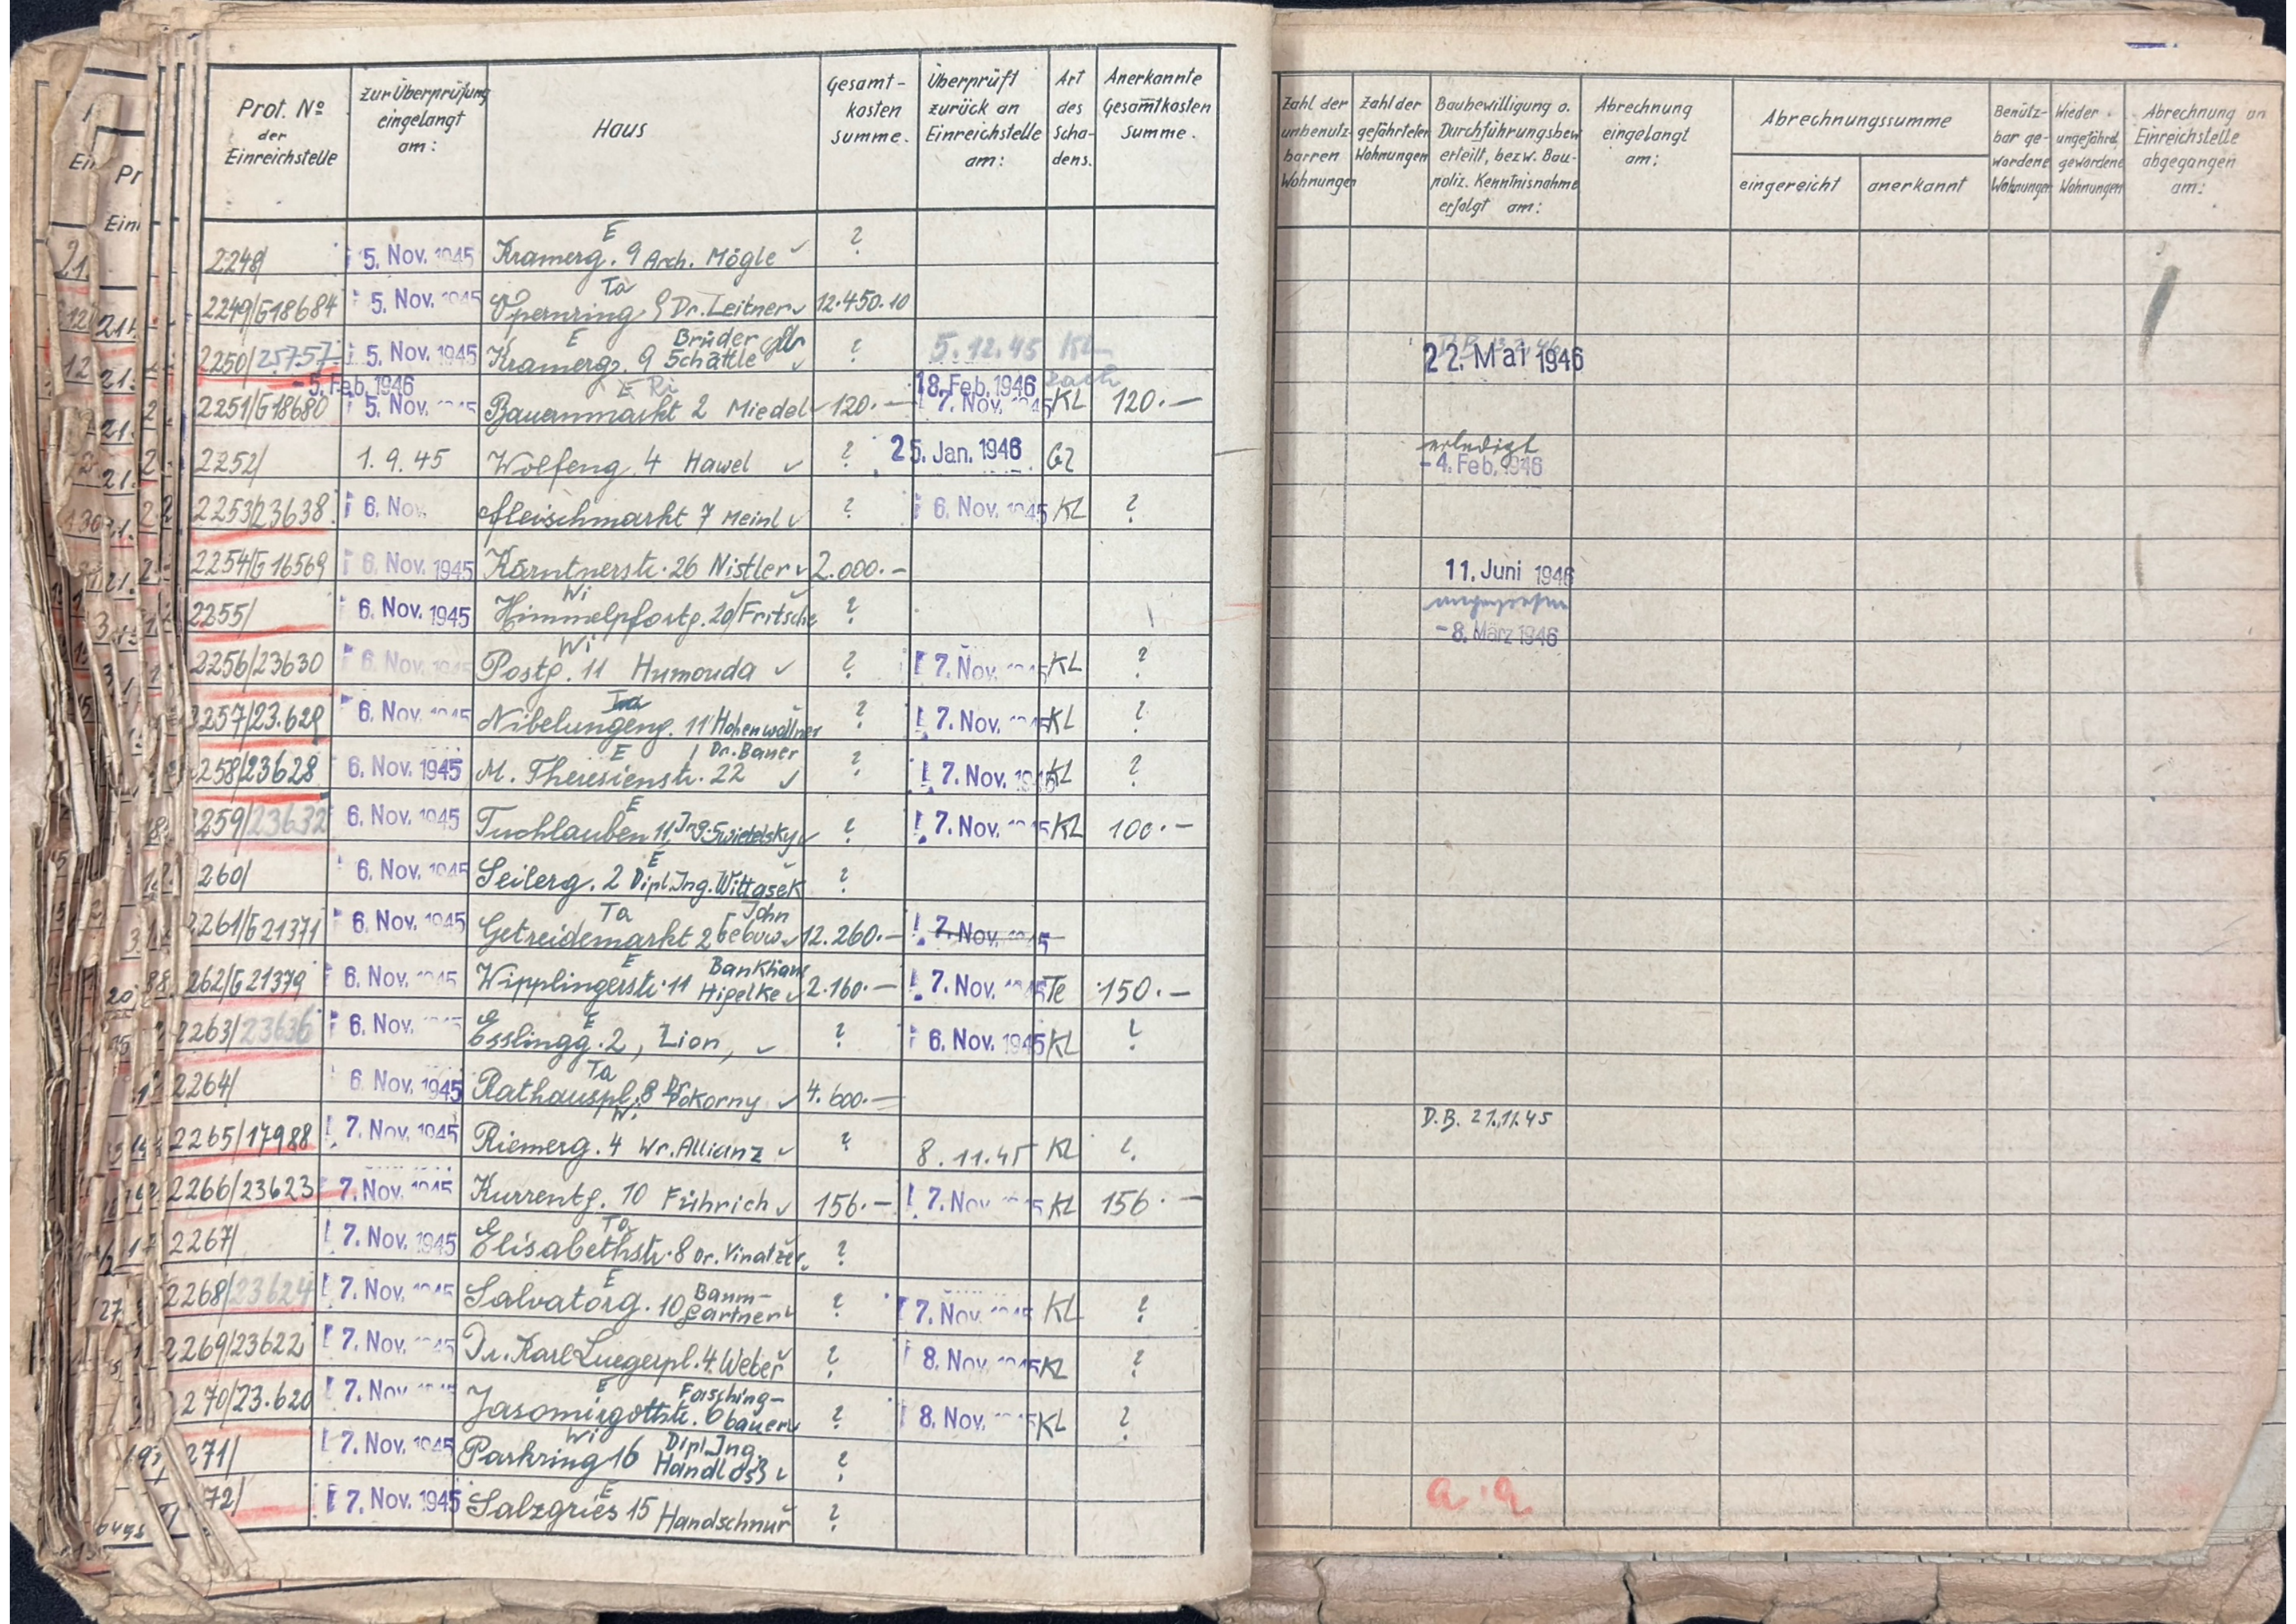 Prot. No der Einreichstelle | zur Überprüfung eingelangt am: | Haus | Gesamt-kosten summe. | Überprüft zurück an Einreichstelle am: | Art des Scha-dens. | Anerkannte Gesamtkosten summe. | Zahl der unbenutz-barren Wohnungen | Zahl der gefährteten Wohnungen | Baubewilligung o. Durchführungsbew. erteilt, bezw. Bau-poliz. Kenntnisnahme erfolgt am: | Abrechnung eingelangt am: | Abrechnungssumme eingereicht | anerkannt | Benütz-bar ge-wordene Wohnungen | Wieder ungefährd. gewordene Wohnungen | Abrechnung an Einreichstelle abgegangen am:
2248/ | 5. Nov. 1945 | E Kramerg. 9 Arch. Mögle | ?
2249/G18684 | 5. Nov. 1945 | Ta Opernring 8 Dr. Leitner | 12.450.10
2250/25757 | 5. Nov. 1945 | E Kramerg. 9 Brüder Schättle | ? | 5.12.45 | KL | 22. Mai 1946
-5. Feb. 1946 | 18. Feb. 1946
2251/G18680 | 5. Nov. 1945 | E Ri Bauernmarkt 2 Miedel | 120.— | 7. Nov. 1945 | KL | 120.—
2252/ | 1.9.45 | Wolfeng. 4 Hawel | ? | 25. Jan. 1946 | Gz | erledigt -4. Feb. 1946
2253/23638 | 6. Nov. | Fleischmarkt 7 Meinl | ? | 6. Nov. 1945 | KL | ?
2254/G16569 | 6. Nov. 1945 | Kärntnerstr. 26 Nistler | 2.000.— | 11. Juni 1946
2255/ | 6. Nov. 1945 | Wi Himmelpfortg. 20/Fritsche | ? | -8. März 1946
2256/23630 | 6. Nov. 1945 | Wi Postg. 11 Humouda | ? | 7. Nov. 1945 | KL | ?
2257/23.629 | 6. Nov. 1945 | Ta Nibelungeng. 11 Hohenwallner | ? | 7. Nov. | KL | ?
258/23628 | 6. Nov. 1945 | E M. Theresienstr. 22 Dr. Bauer | ? | 7. Nov. 1945 | KL | ?
259/23632 | 6. Nov. 1945 | E Tuchlauben 11, Ing. Swietelsky | ? | 7. Nov. 1945 | KL | 100.—
260/ | 6. Nov. 1945 | E Seilerg. 2 Dipl. Ing. Wittasek | ?
2261/G21371 | 6. Nov. 1945 | Ta Getreidemarkt 2 John | 12.260.— | 7. Nov. 1945
262/G21379 | 6. Nov. 1945 | E Wipplingerstr. 11 Bankhaus | 2.160.— | 7. Nov. 1945 | Te | 150.—
2263/23636 | 6. Nov. 1945 | E Esslingg. 2, Lion, | ? | 6. Nov. 1945 | KL | ?
2264/ | 6. Nov. 1945 | Ta Rathauspl. 8 Dr. Pokorny | 4.600.—
2265/17988 | 7. Nov. 1945 | Wi Riemerg. 4 Wr. Allianz | ? | 8.11.45 | KL | ? | D.B. 21.11.45
2266/23623 | 7. Nov. 1945 | Kurrentg. 10 Führich | 156.— | 7. Nov. 1945 | KL | 156.—
2267/ | 7. Nov. 1945 | Ta Elisabethstr. 8 Dr. Vinatzer | ?
2268/23624 | 7. Nov. 1945 | E Salvatorg. 10 Baum-gartner | ? | 7. Nov. 1945 | KL | ?
2269/23622 | 7. Nov. 1945 | Dr. Karl Luegerpl. 4. Weber | ? | 8. Nov. 1945 | KL | ?
270/23.620 | 7. Nov. 1945 | E Jasomirgottstr. 6 Fasching-bauer | ? | 8. Nov. 1945 | KL | ?
271/ | 7. Nov. 1945 | Wi Parkring 16 Dipl. Ing. Handloß | ?
72/ | 7. Nov. 1945 | E Salzgries 15 Handschnur | ? | a.a.